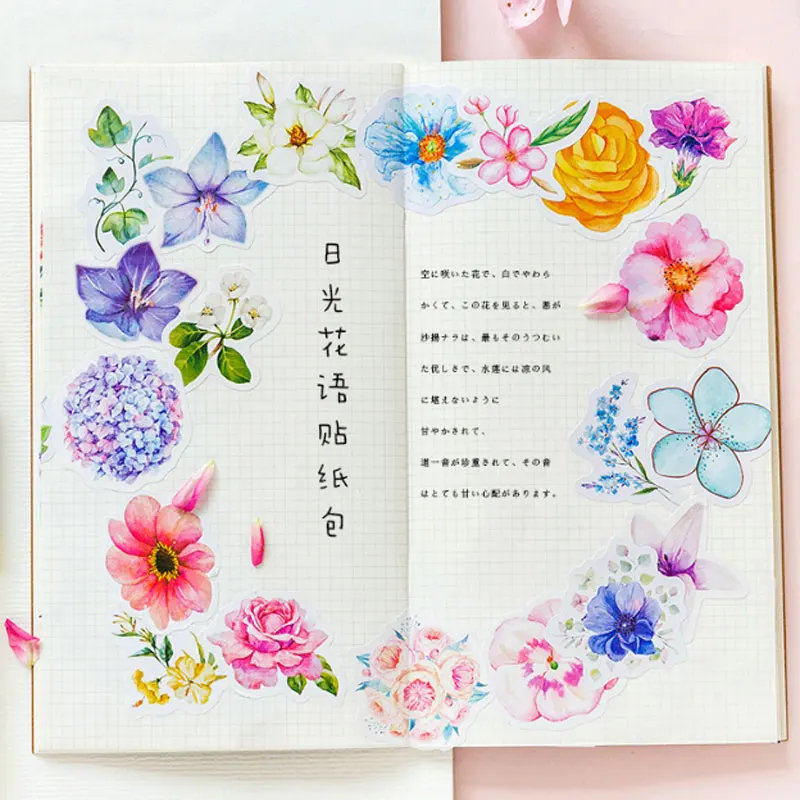 日光花语贴纸包
空に咲いた花で、白でやわら
かくて、この花を見ると、悪が
沙揚ナラは、最もそのうつむい
た优しさで、水莲には凉の风
に堪えないように
甘やかされて、
道一音が珍重されて、その音
はとても甘い心配があります。